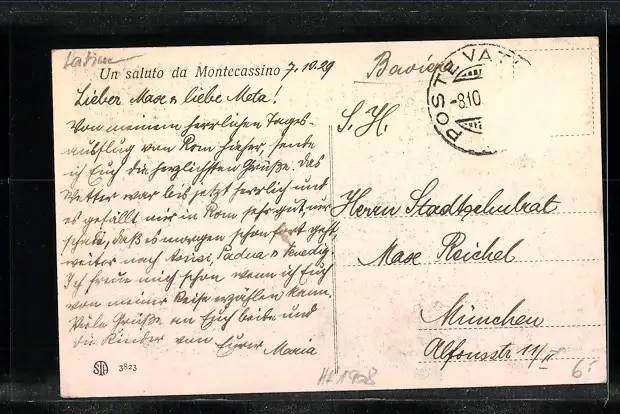 Un saluto da Montecassino 7.10.29
Lieber Max u liebe Meta!
Von meinem herrlichen Tages-
ausflug von Rom hieher, sende
ich Euch die herzlichsten Grüße. Das
Wetter war bis jetzt herrlich und
es gefällt mir in Rom sehr gut, nur
schade, daß es morgen schon fort geht
weiter nach Assisi, Padua u Venedig
Ich freue mich schon wenn ich Euch
von meiner Reise erzählen kann.
Viele Grüße an Euch beide und
die Kinder von Eurer Maria
STA 3823
Baviera
POSTE VAT
-8.10
S. H.
Herrn Stadtschulrat
Max Reichel
München
Alfonsstr 11/II
6.-